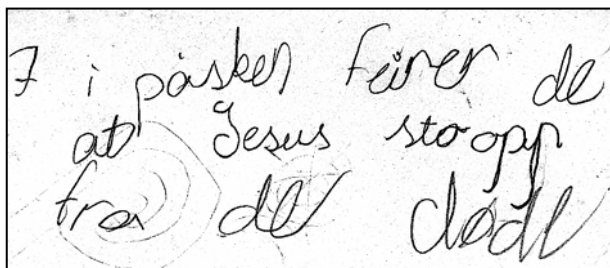 7 i påsken feirer de
at Jesus sto opp
fra de døde